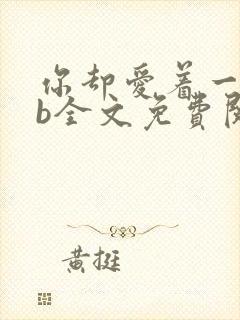 你却爱着一
b全文免費閱
黄挺